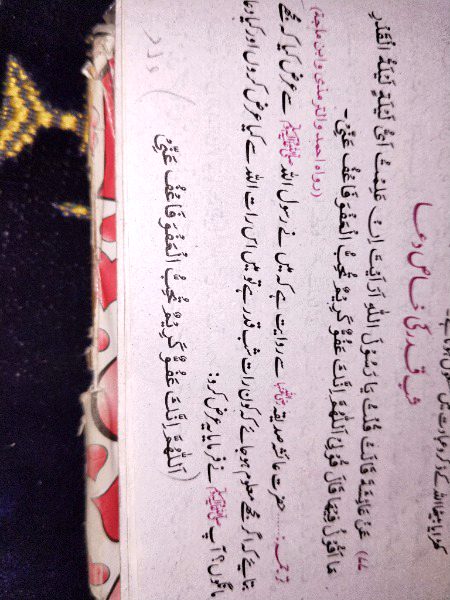 کھڑا یا بیٹھا اللہ کے ذکر و عبادت میں مشغول ہوتا ہے۔
شب قدر کی خاص دعا
(۷۷) عَنْ عَائِشَةَ قَالَتْ قُلْتُ يَا رَسُوْلَ اللهِ اَرَاَيْتَ اِنْ عَلِمْتُ اَىُّ لَيْلَةٍ لَيْلَةُ الْقَدْرِ
مَا اَقُوْلُ فِيْهَا قَالَ قُوْلِىْ اَللّٰهُمَّ اِنَّكَ عَفُوٌّ كَرِيْمٌ تُحِبُّ الْعَفْوَ فَاعْفُ عَنِّىْ۔
(رواه احمد والترمذى وابن ماجة)
ترجمہ..... حضرت عائشہ صدیقہ رضی اللہ عنہا سے روایت ہے کہ میں نے رسول اللہ ﷺ سے عرض کیا کہ مجھے
بتایئے کہ اگر مجھے معلوم ہو جائے کہ کون رات شب قدر ہے تو میں اس رات اللہ سے کیا عرض کروں اور کیا دعا
مانگوں؟ آپ ﷺ نے فرمایا یہ عرض کرو:
اَللّٰهُمَّ اِنَّكَ عَفُوٌّ كَرِيْمٌ تُحِبُّ الْعَفْوَ فَاعْفُ عَنِّىْ